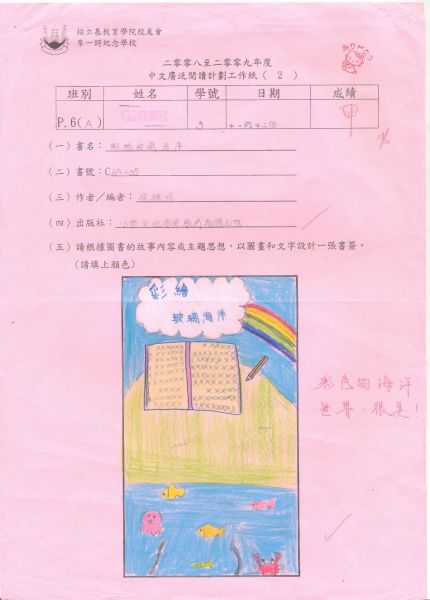 柏立基教育學院校友會
李一諤紀念學校
二零零八至二零零九年度
中文廣泛閱讀計劃工作紙( 2 )
班別 姓名 學號 日期 成績
P.6(A) 3 十一月十二日
(一)書名:彩繪玻璃海洋
(二)書號:C
(三)作者/編者:
(四)出版社:
(五)請根據圖書的故事內容或主題思想,以圖畫和文字設計一張書簽。
(請填上顏色)
彩繪
玻璃海洋
彩色的海洋
世界,很美!